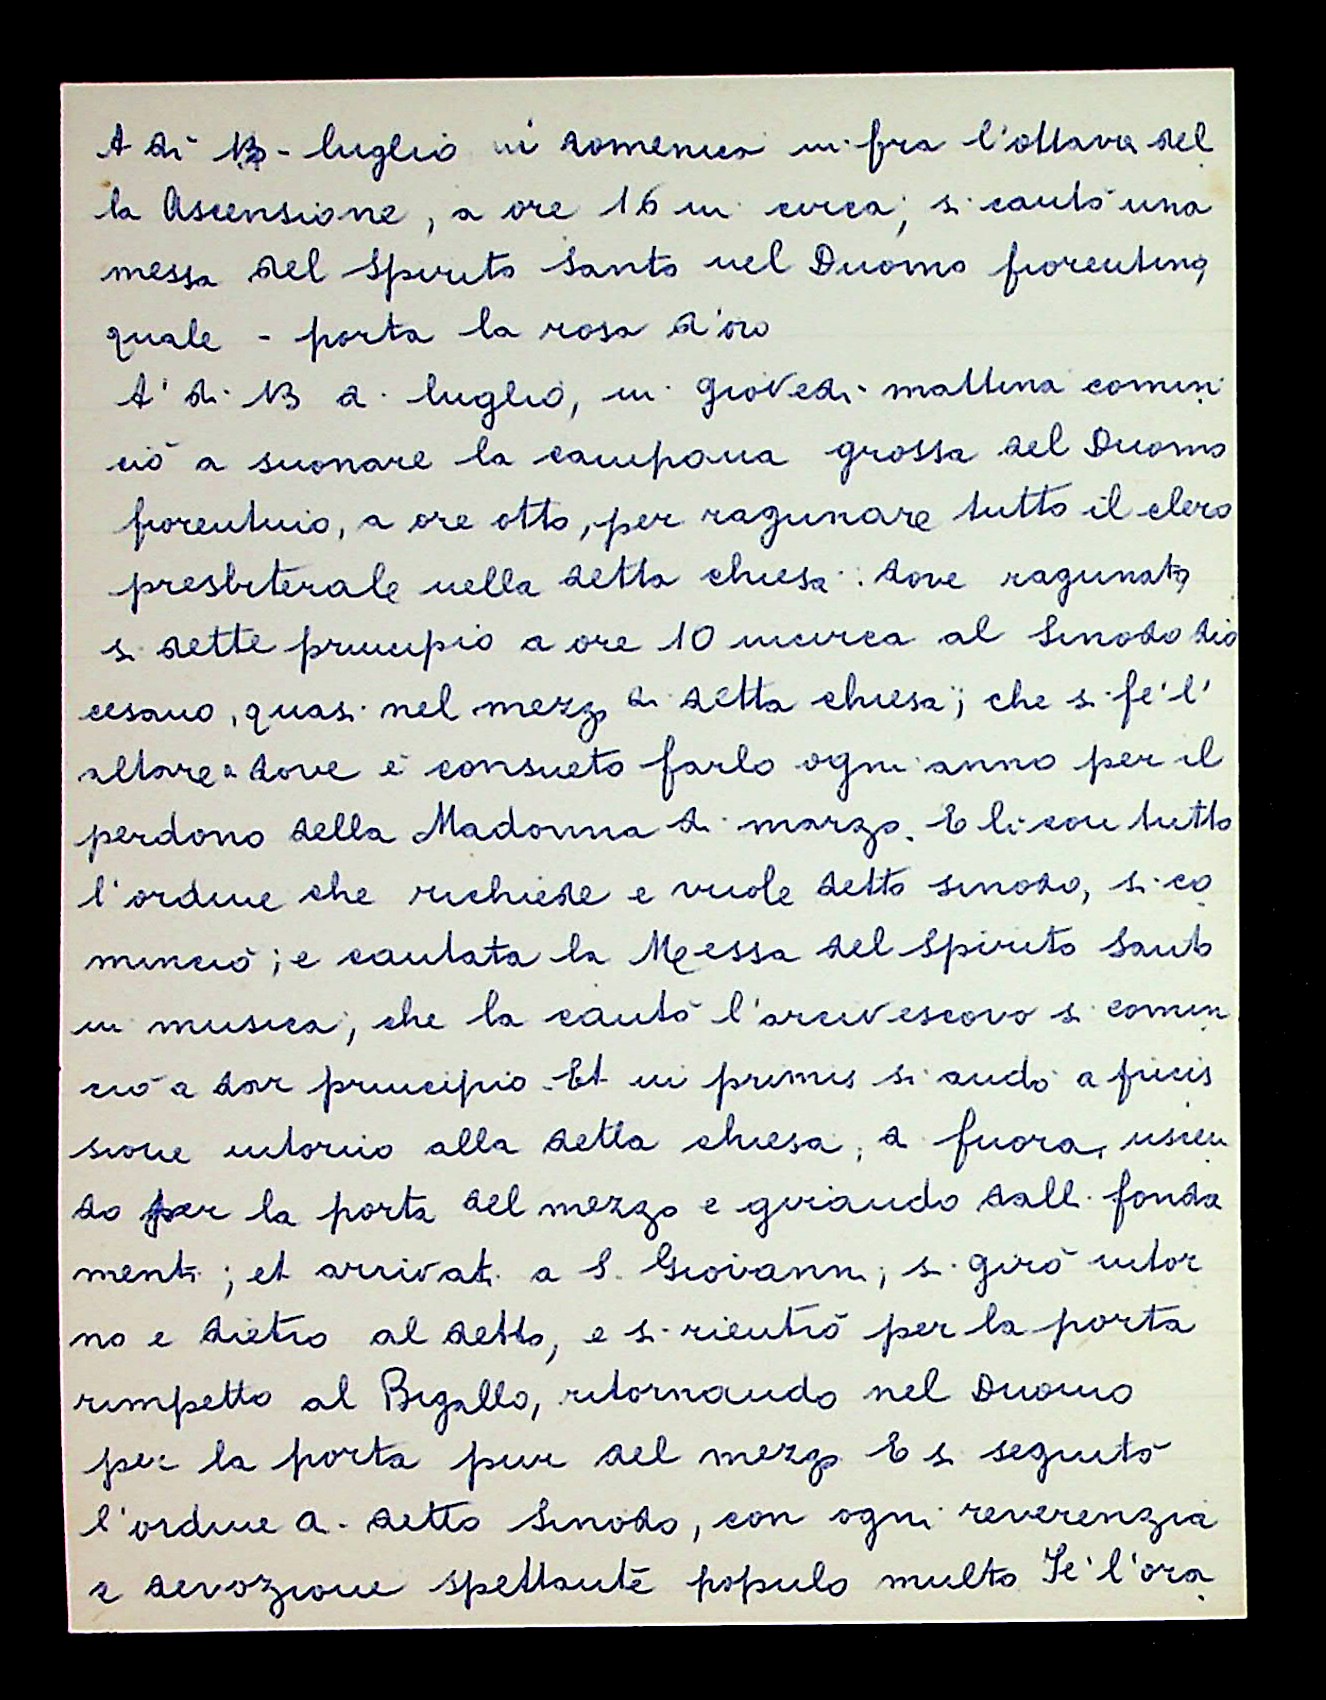 A dì 13 - luglio in domenica in fra l'ottava del
la Ascensione, a ore 16 in circa, si cantò una
messa del Spirito Santo nel Duomo fiorentino,
quale - porta la rosa d'oro
A' di 13 di luglio, in giovedi mattina comin
ciò a suonare la campana grossa del Duomo
fiorentino, a ore otto, per ragunare tutto il clero
presbiterale nella detta chiesa: dove ragunato,
si dette principio a ore 10 incirca al Sinodo dio
cesano, quasi nel mezzo di detta chiesa; che si fe' l'
altare dove è consueto farlo ogni anno per il
perdono della Madonna di marzo. E lì con tutto
l'ordine che richiede e vuole detto sinodo, si co
minciò; e cantata la Messa del Spirito Santo
in musica, che la cantò l'arcivescovo si comin
ciò a dar principio. Et in primis si andò a
sione intorno alla detta chiesa, di fuora, uscen
do per la porta del mezzo e girando dalli fonda
menti; et arrivati a S. Giovanni, si girò intor
no e dietro al detto, e si rientrò per la porta
rimpetto al Bigallo, ritornando nel Duomo
per la porta pur del mezzo E si seguitò
l'ordine di detto Sinodo, con ogni reverenzia
e devozione spettante populo multo Fe' l'ora